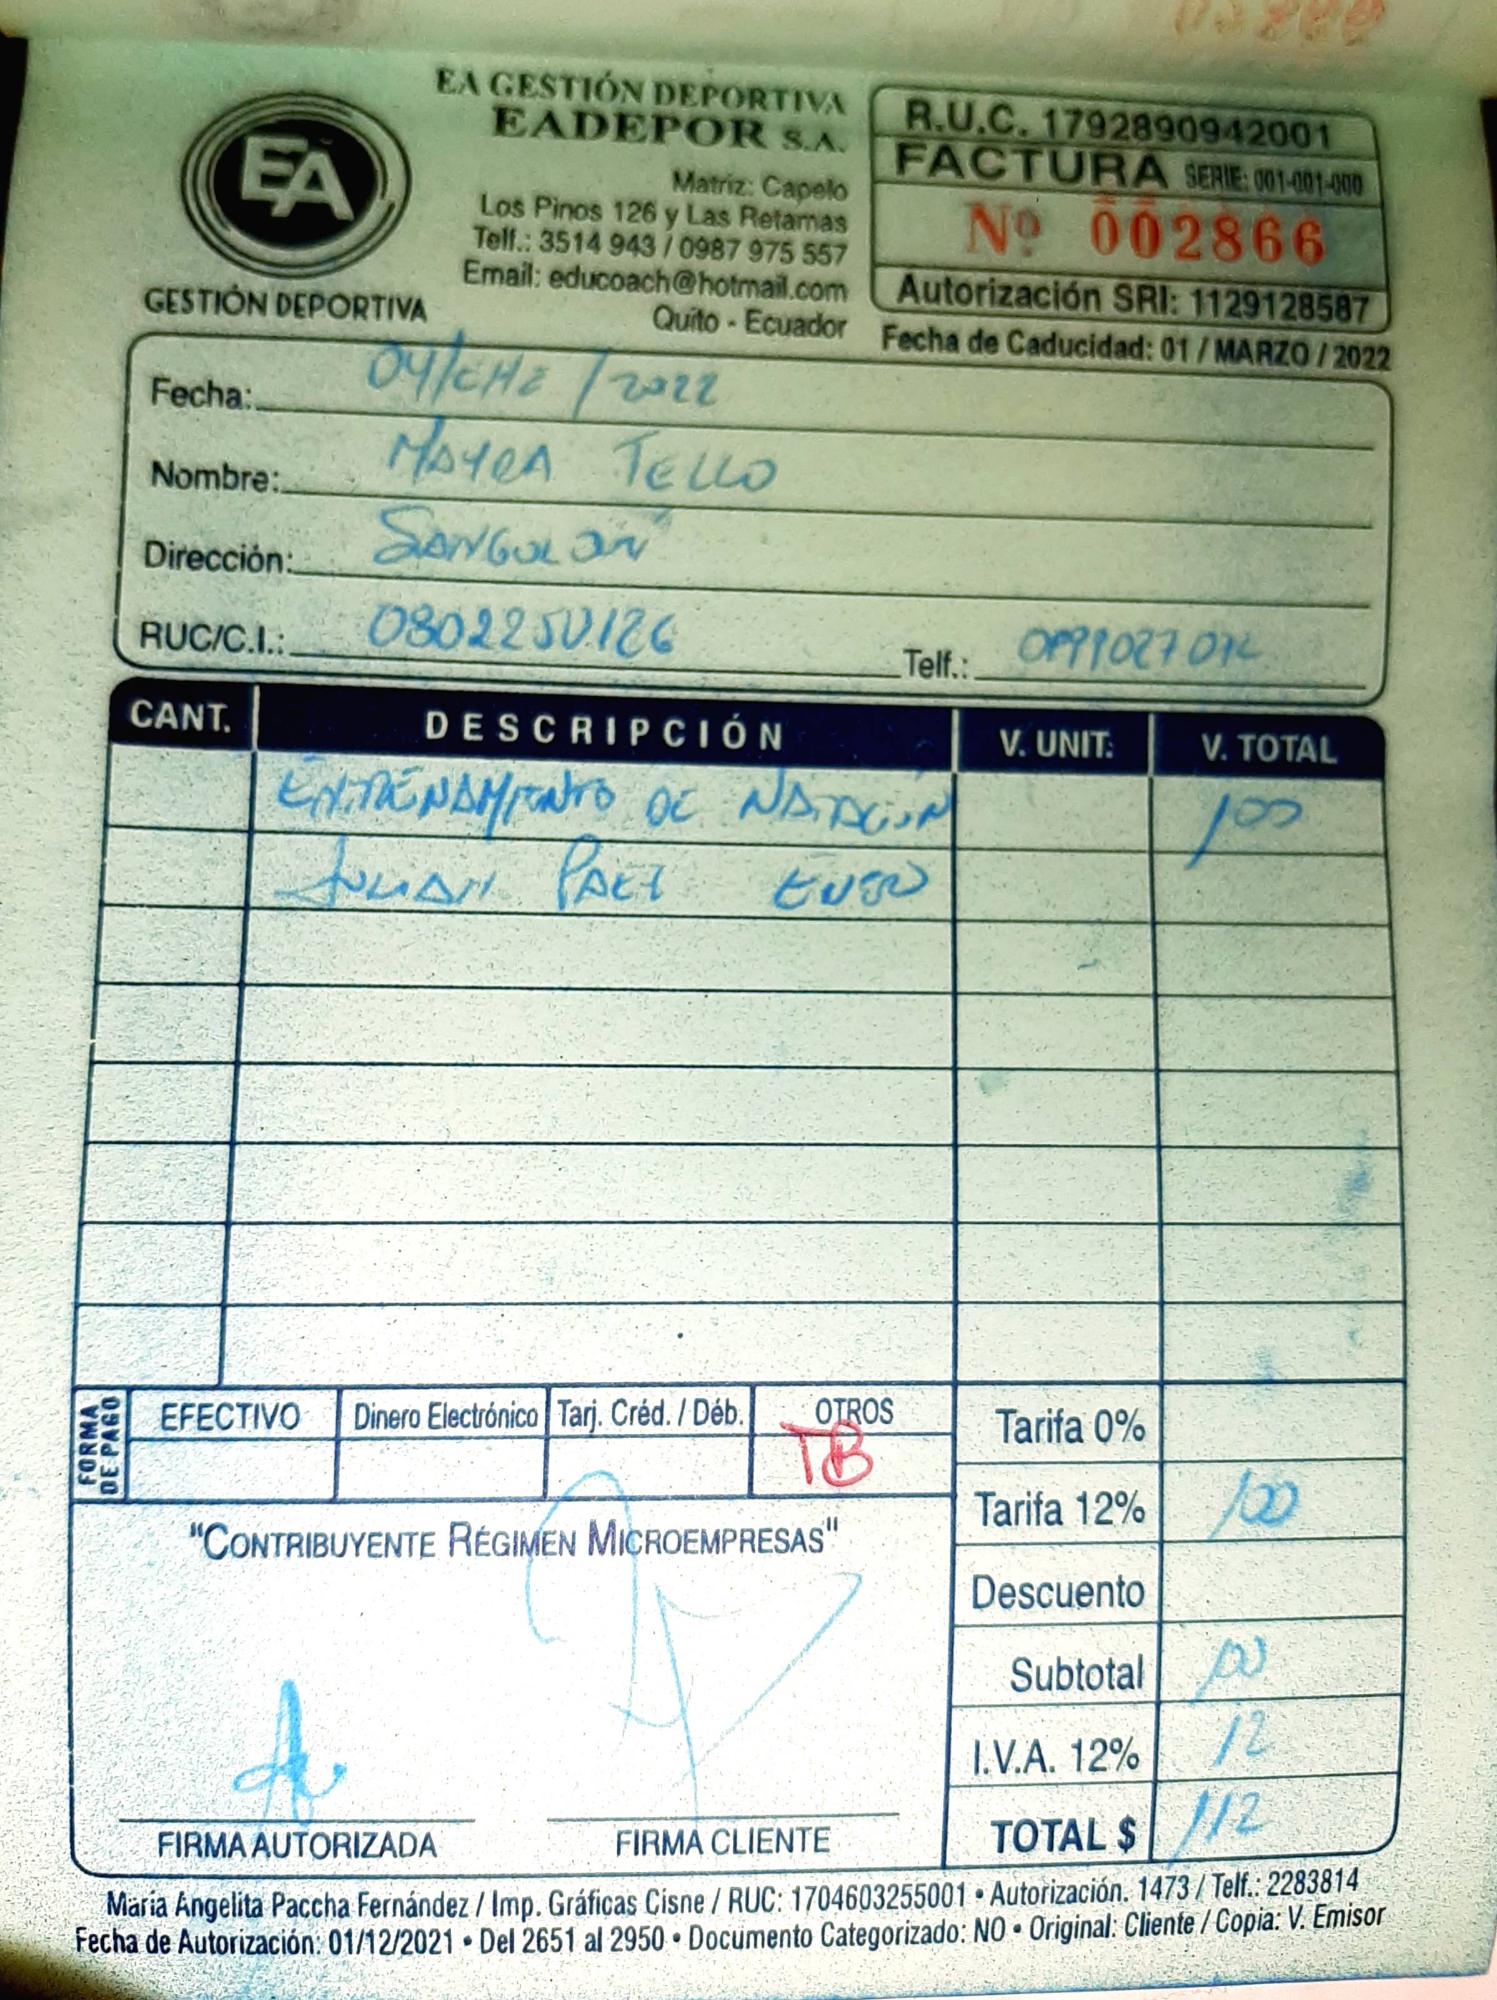 EA GESTIÓN DEPORTIVA
EADEPOR S.A.
Matriz: Capelo
Los Pinos 126 y Las Retamas
Telf.: 3514 943 / 0987 975 557
Email: educoach@hotmail.com
Quito - Ecuador
EA
GESTIÓN DEPORTIVA
R.U.C. 1792890942001
FACTURA SERIE: 001-001-000
Nº 002866
Autorización SRI: 1129128587
Fecha de Caducidad: 01 / MARZO / 2022
Fecha: 04/ENE/2022
Nombre: MAYRA TELLO
Dirección:
RUC/C.I.:
Telf.:
CANT. DESCRIPCIÓN V. UNIT. V. TOTAL
ENTRENAMIENTO DE NATACIÓN 100
JULIAN PAEZ ENERO
FORMA DE PAGO
EFECTIVO Dinero Electrónico Tarj. Créd. / Déb. OTROS
TB
Tarifa 0%
Tarifa 12% 100
Descuento
Subtotal 100
I.V.A. 12% 12
TOTAL $ 112
"CONTRIBUYENTE RÉGIMEN MICROEMPRESAS"
FIRMA AUTORIZADA FIRMA CLIENTE
María Angelita Paccha Fernández / Imp. Gráficas Cisne / RUC: 1704603255001 • Autorización. 1473 / Telf.: 2283814
Fecha de Autorización: 01/12/2021 • Del 2651 al 2950 • Documento Categorizado: NO • Original: Cliente / Copia: V. Emisor